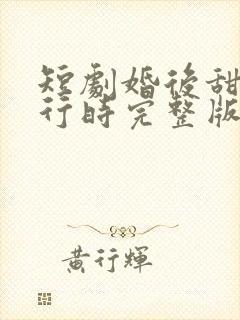 短劇婚後甜
行時完整版
黃行輝